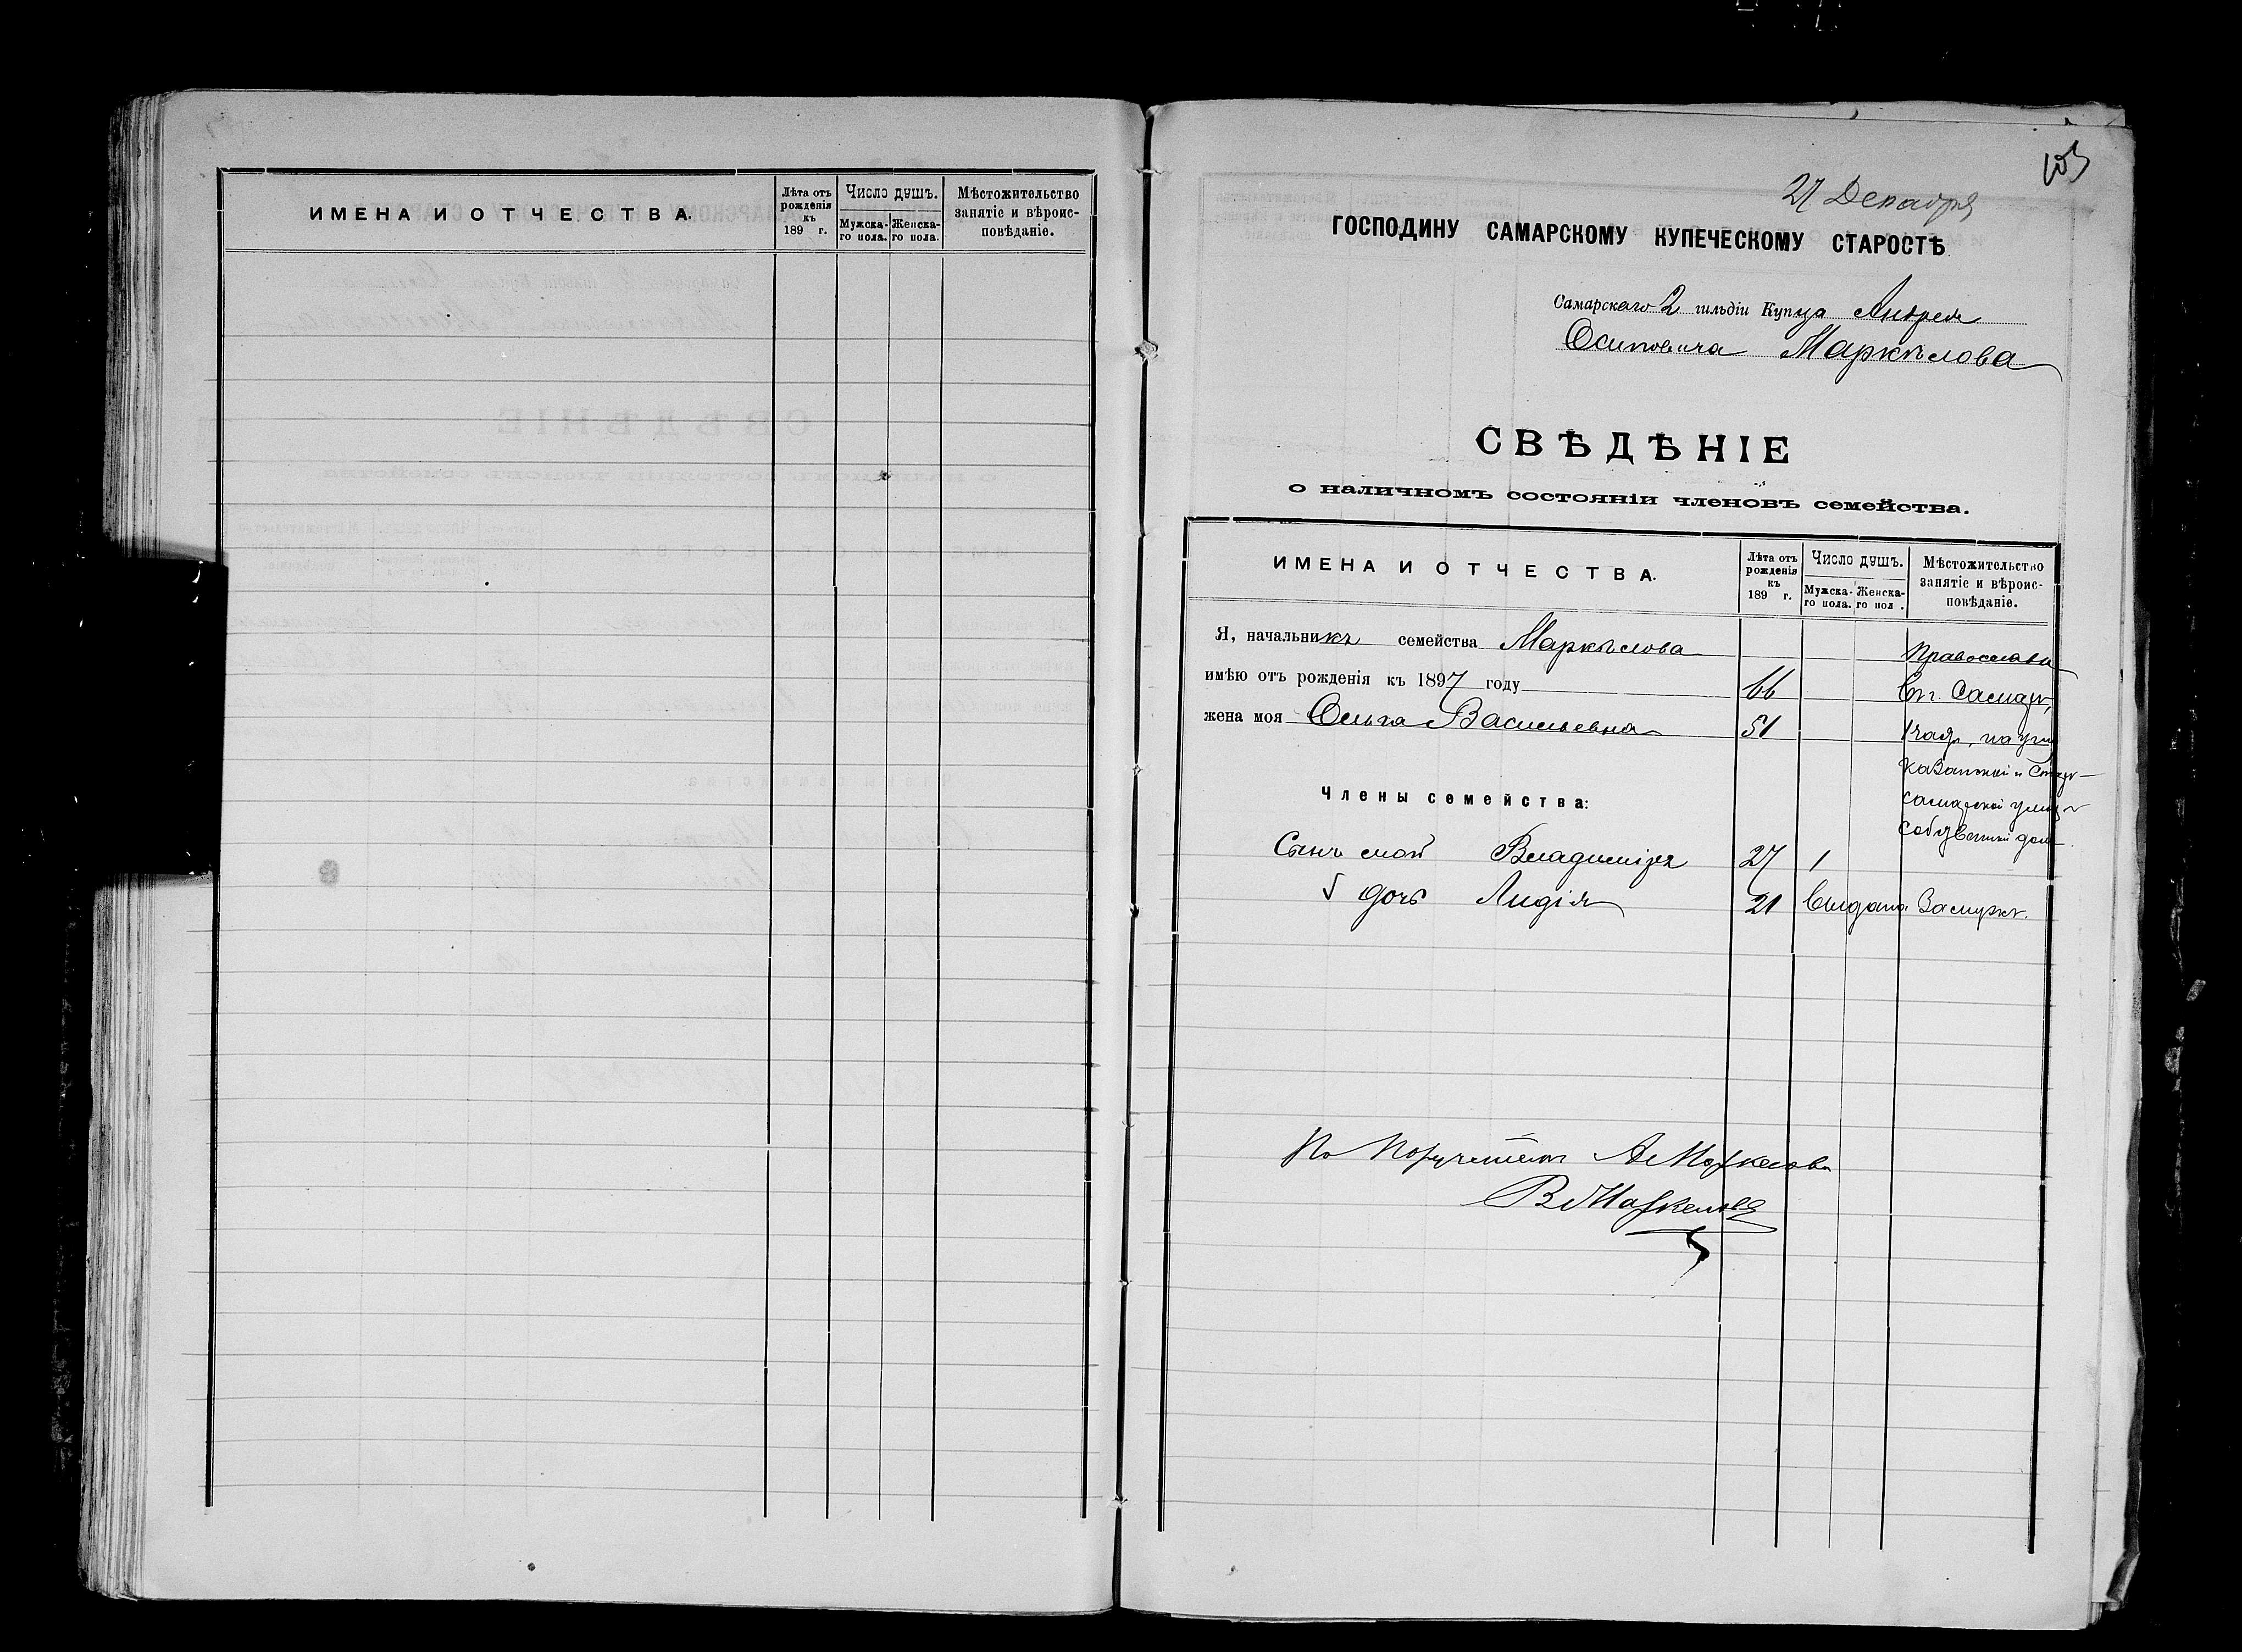 ИМЕНА И ОТЧЕСТВА.
Лѣта отъ рожденія къ 189 г.
Число душъ.
Мужска-го пола.
Женска-го пола.
Мѣстожительство занятіе и вѣроис-повѣданіе.
103
27 Декабря
ГОСПОДИНУ САМАРСКОМУ КУПЕЧЕСКОМУ СТАРОСТѢ
Самарскаго 2 гильдіи Купца Андрея
Осиповича Маркѣлова
СВѢДѢНІЕ
о наличномъ состояніи членовъ семейства.
ИМЕНА И ОТЧЕСТВА.
Лѣта отъ рожденія къ 189 г.
Число душъ.
Мужска-го пола.
Женска-го пол .
Мѣстожительство занятіе и вѣроис-повѣданіе.
Я, начальникъ семейства Маркѣлова
Православн
имѣю отъ рожденія къ 1897 году 66
въ г. Самарѣ,
жена моя Ольга Васильевна 51
1 час., на углу
Казанской и Старо-
самарской улицъ
собственный домъ
Члены семейства:
Сынъ мой Владиміръ 27 1
√ дочь Лидія 21 выдана Замужъ.
По Порученію А Маркелова
В Маркеловъ